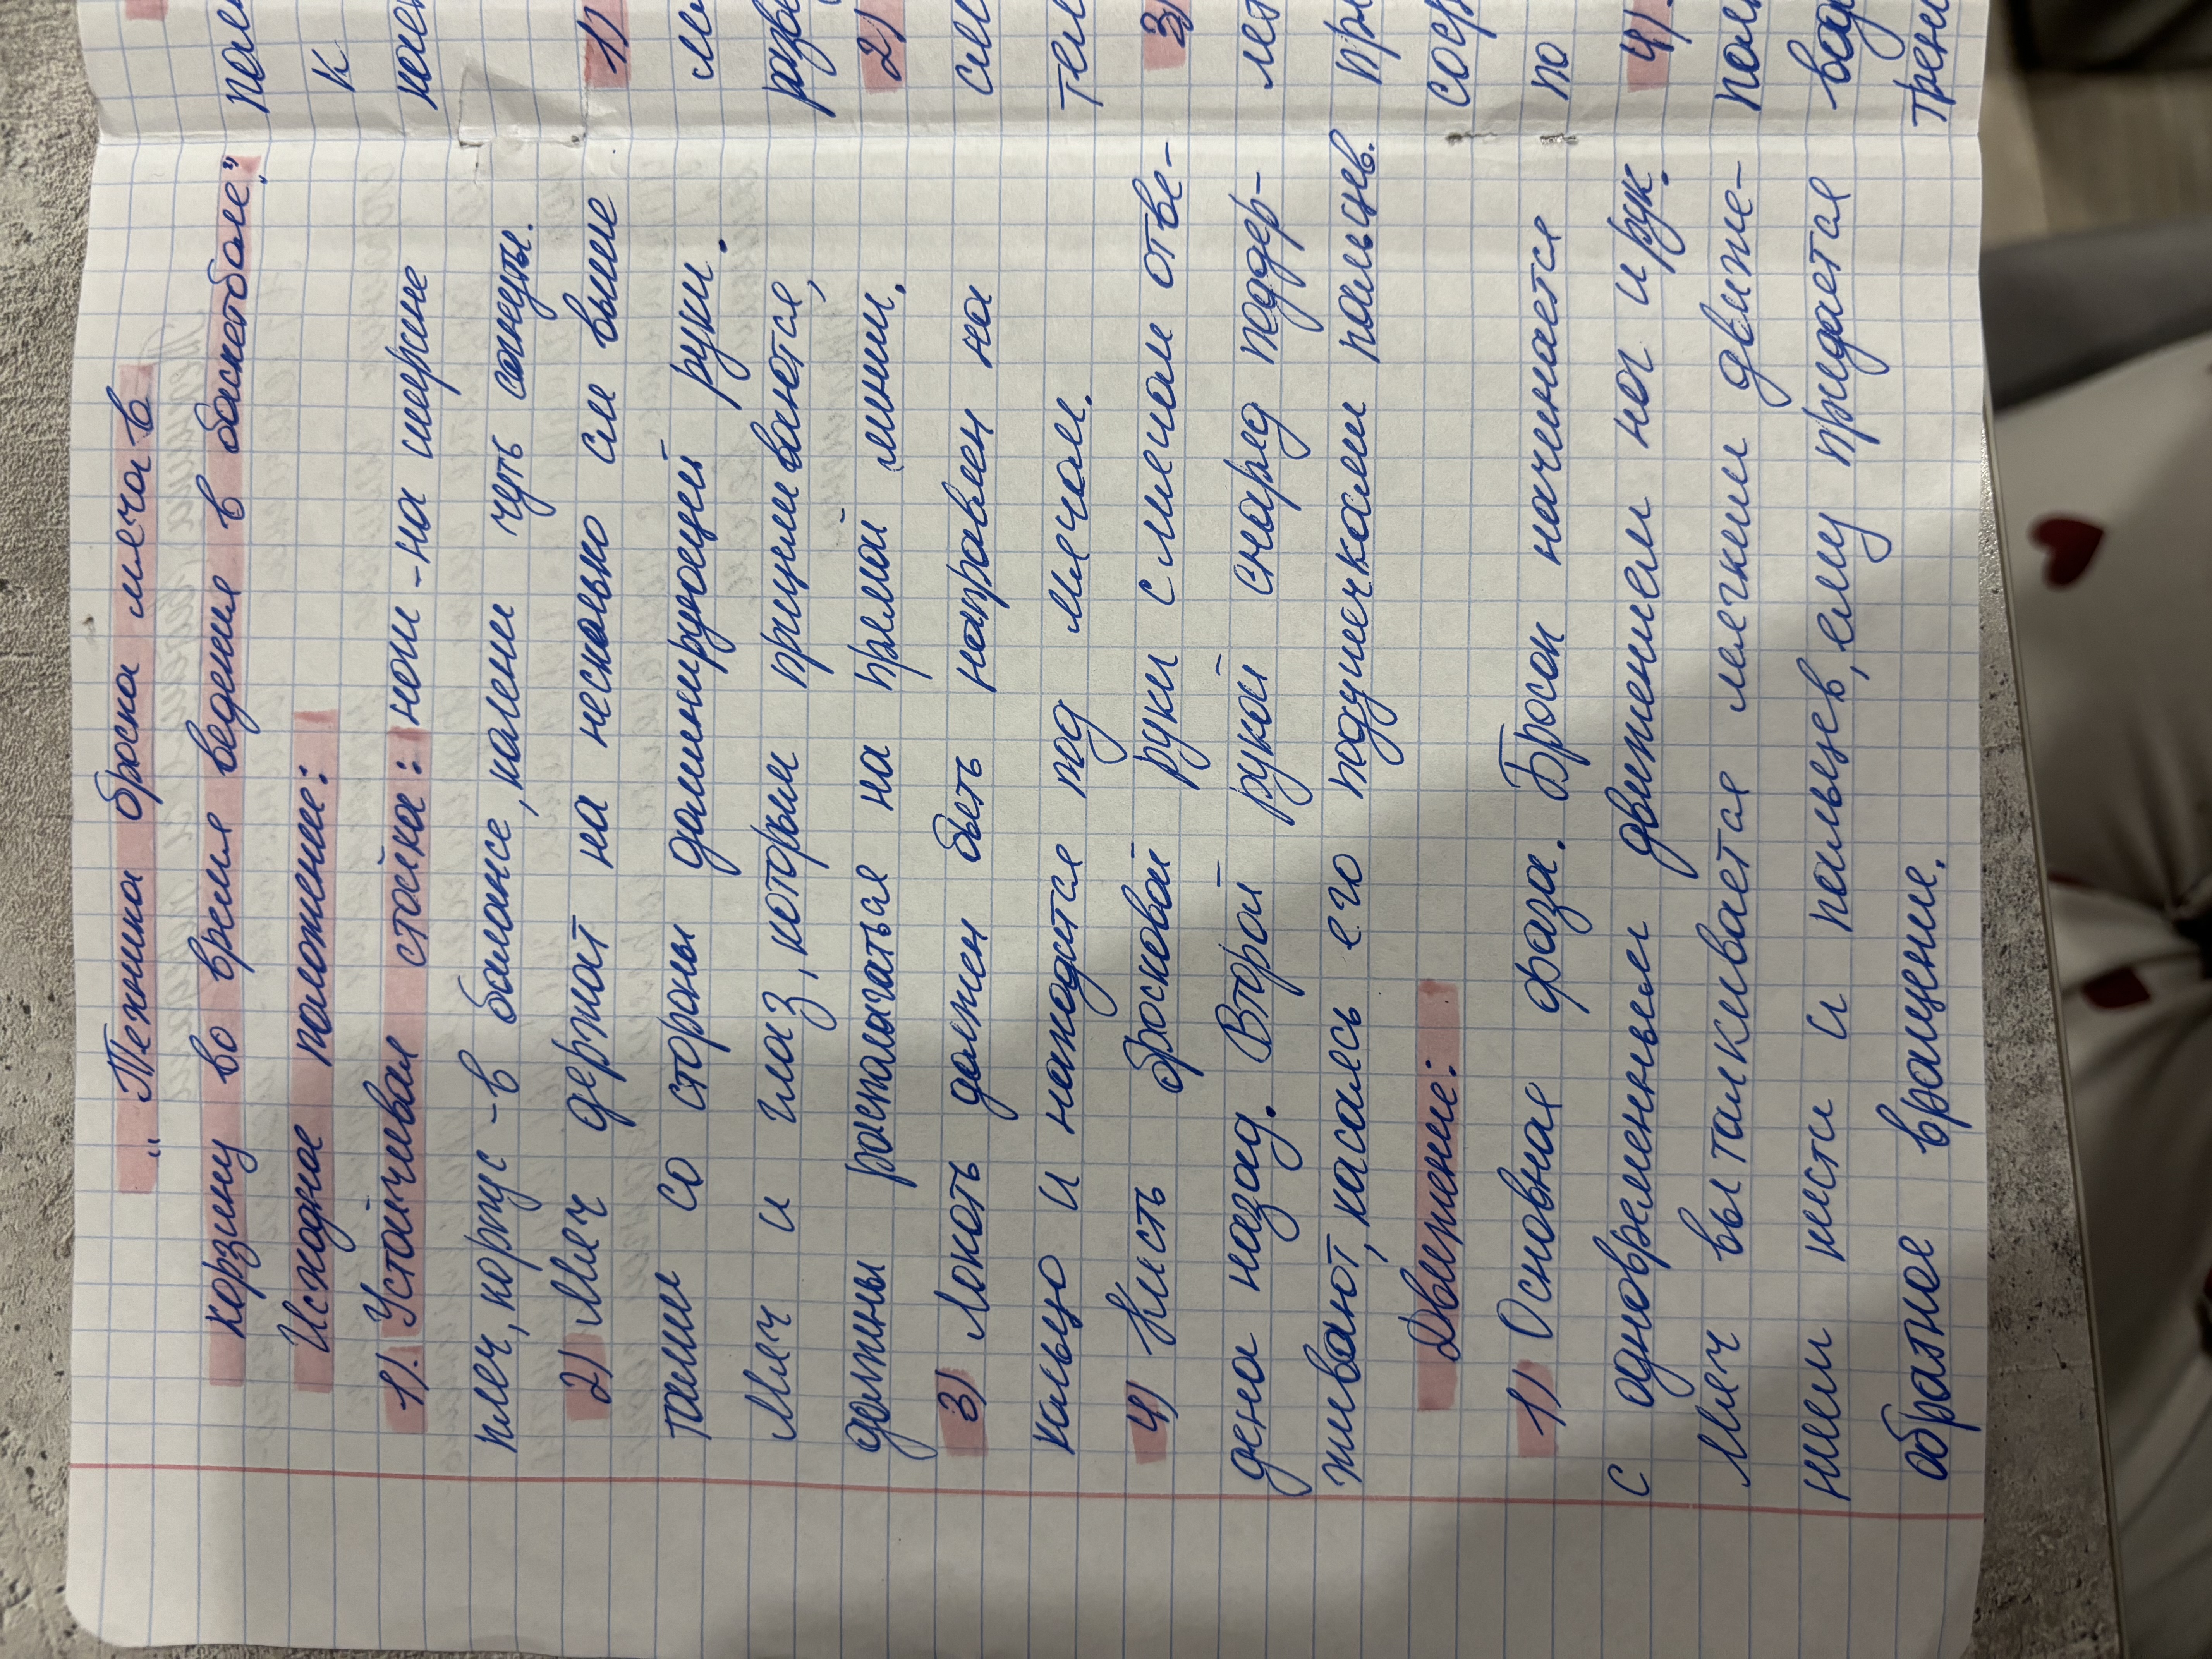 „Техника броска мяча в
корзину во время ведения в баскетболе".
Исходное положение:
1). Устойчивая стойка: ноги -на ширине
плеч, корпус -в балансе, колени чуть согнуты.
2) Мяч держат на несколько см выше
талии со стороны доминирующей руки.
Мяч и глаз, которым прицеливаются,
должны располагаться на прямой линии.
3) Локоть должен быть направлен на
кольцо и находится под мячом.
4) Кисть бросковой руки с мячом отве-
дена назад. Второй рукой снаряд поддер-
живают, касаясь его подушечками пальцев.
Движение:
1) Основная фаза. Бросок начинается
с одновременным движением ног и рук.
Мяч выталкивается легким движе-
нием кисти и пальцев, ему придается
обратное вращение.
к
1)
2)
3)
по
4).